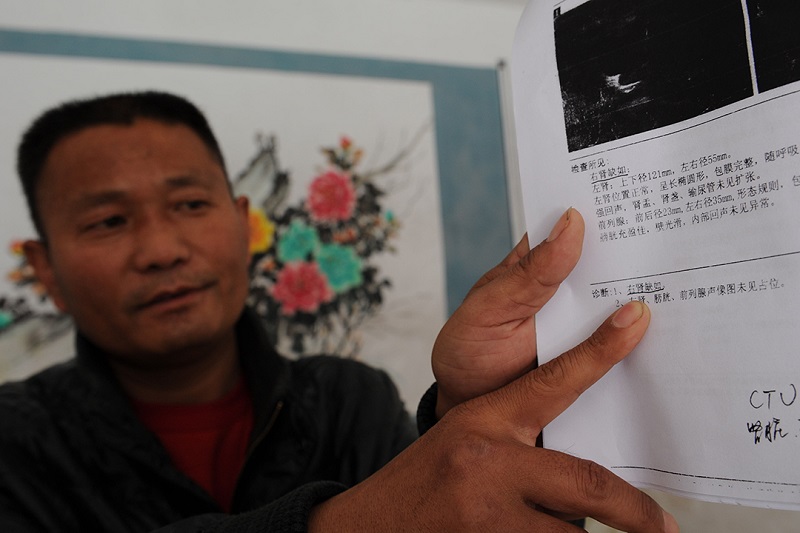 检查所见:
右肾缺如;
左肾: 上下径121mm, 左右径55mm。
左肾位置正常, 呈长椭圆形, 包膜完整, 随呼吸
强回声, 肾盂、肾盏、输尿管未见扩张。
前列腺: 前后径23mm,左右径35mm,形态规则, 包
膀胱充盈佳, 壁光滑, 内部回声未见异常。
诊断:1、右肾缺如。
2、左肾、膀胱, 前列腺声像图未见占位。
CTU